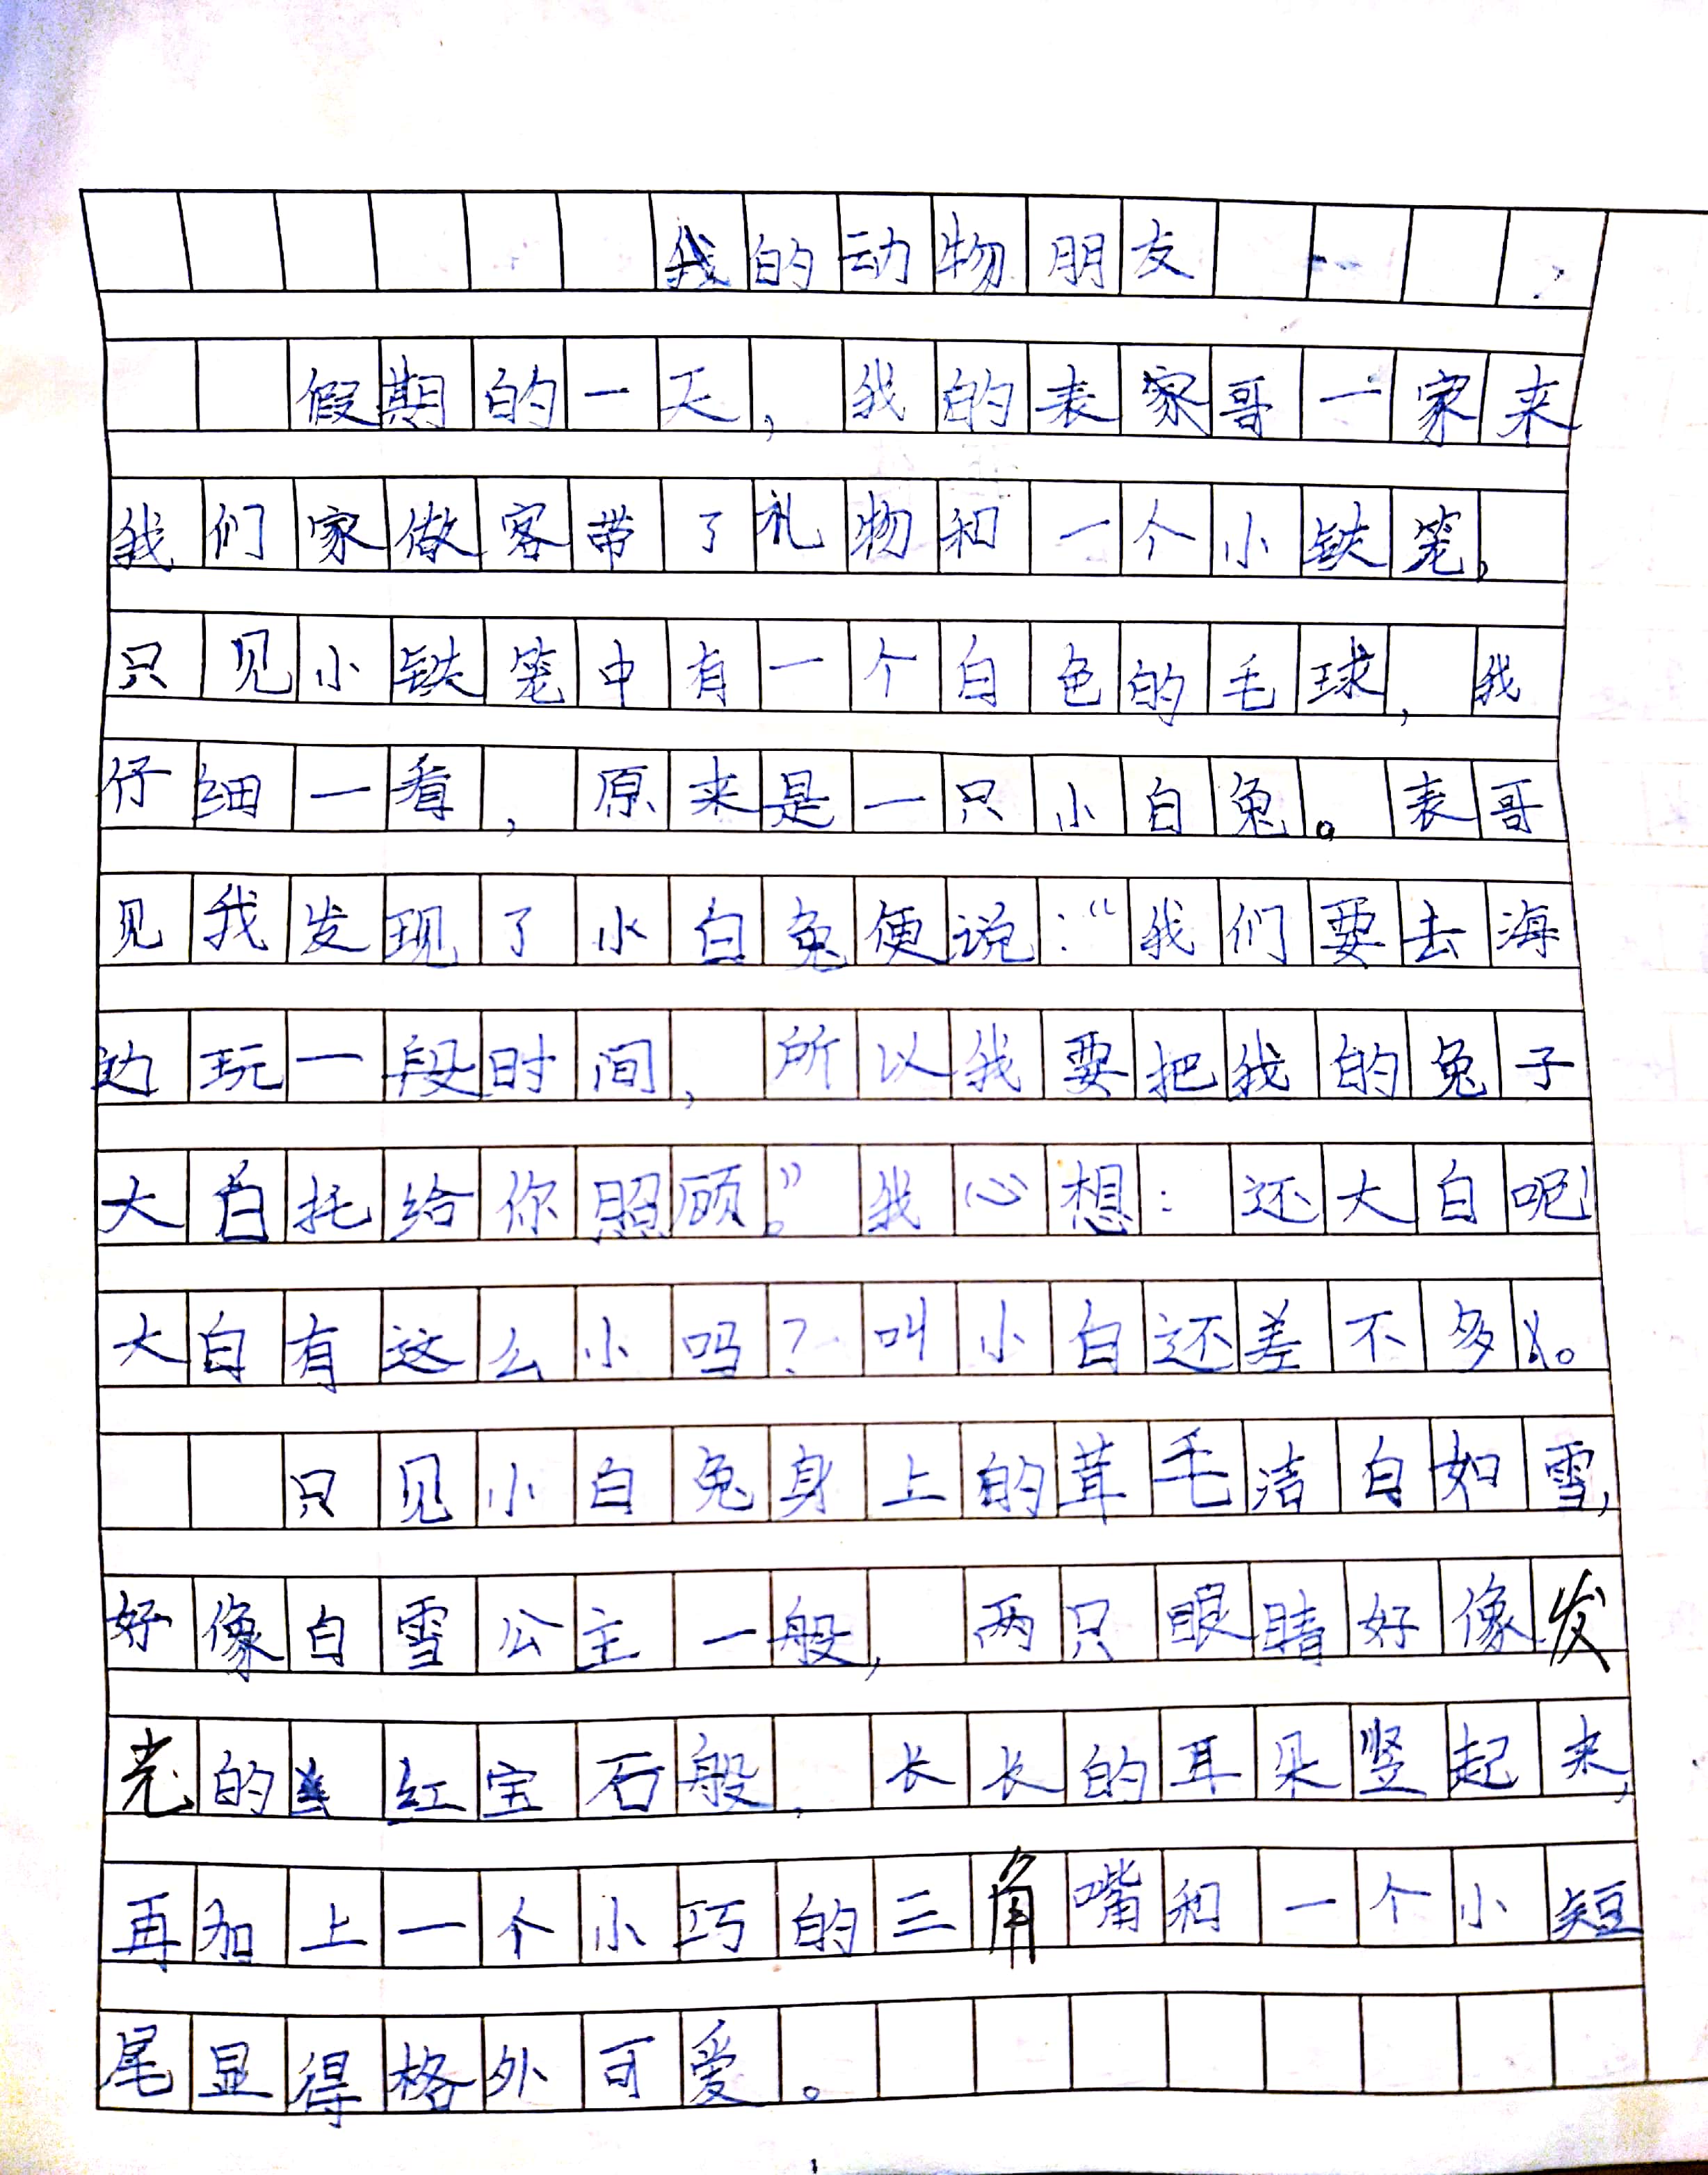 我的动物朋友
假期的一天，我的表家哥一家来
我们家做客带了礼物和一个小铁笼，
只见小铁笼中有一个白色的毛球，我
仔细一看，原来是一只小白兔。表哥
见我发现了小白兔便说：“我们要去海
边玩一段时间，所以我要把我的兔子
大白托给你照顾。”我心想：还大白呢！
大白有这么小吗？叫小白还差不多。
只见小白兔身上的茸毛洁白如雪，
好像白雪公主一般，两只眼睛好像发
光的红宝石般，长长的耳朵竖起来，
再加上一个小巧的三角嘴和一个小短
尾显得格外可爱。